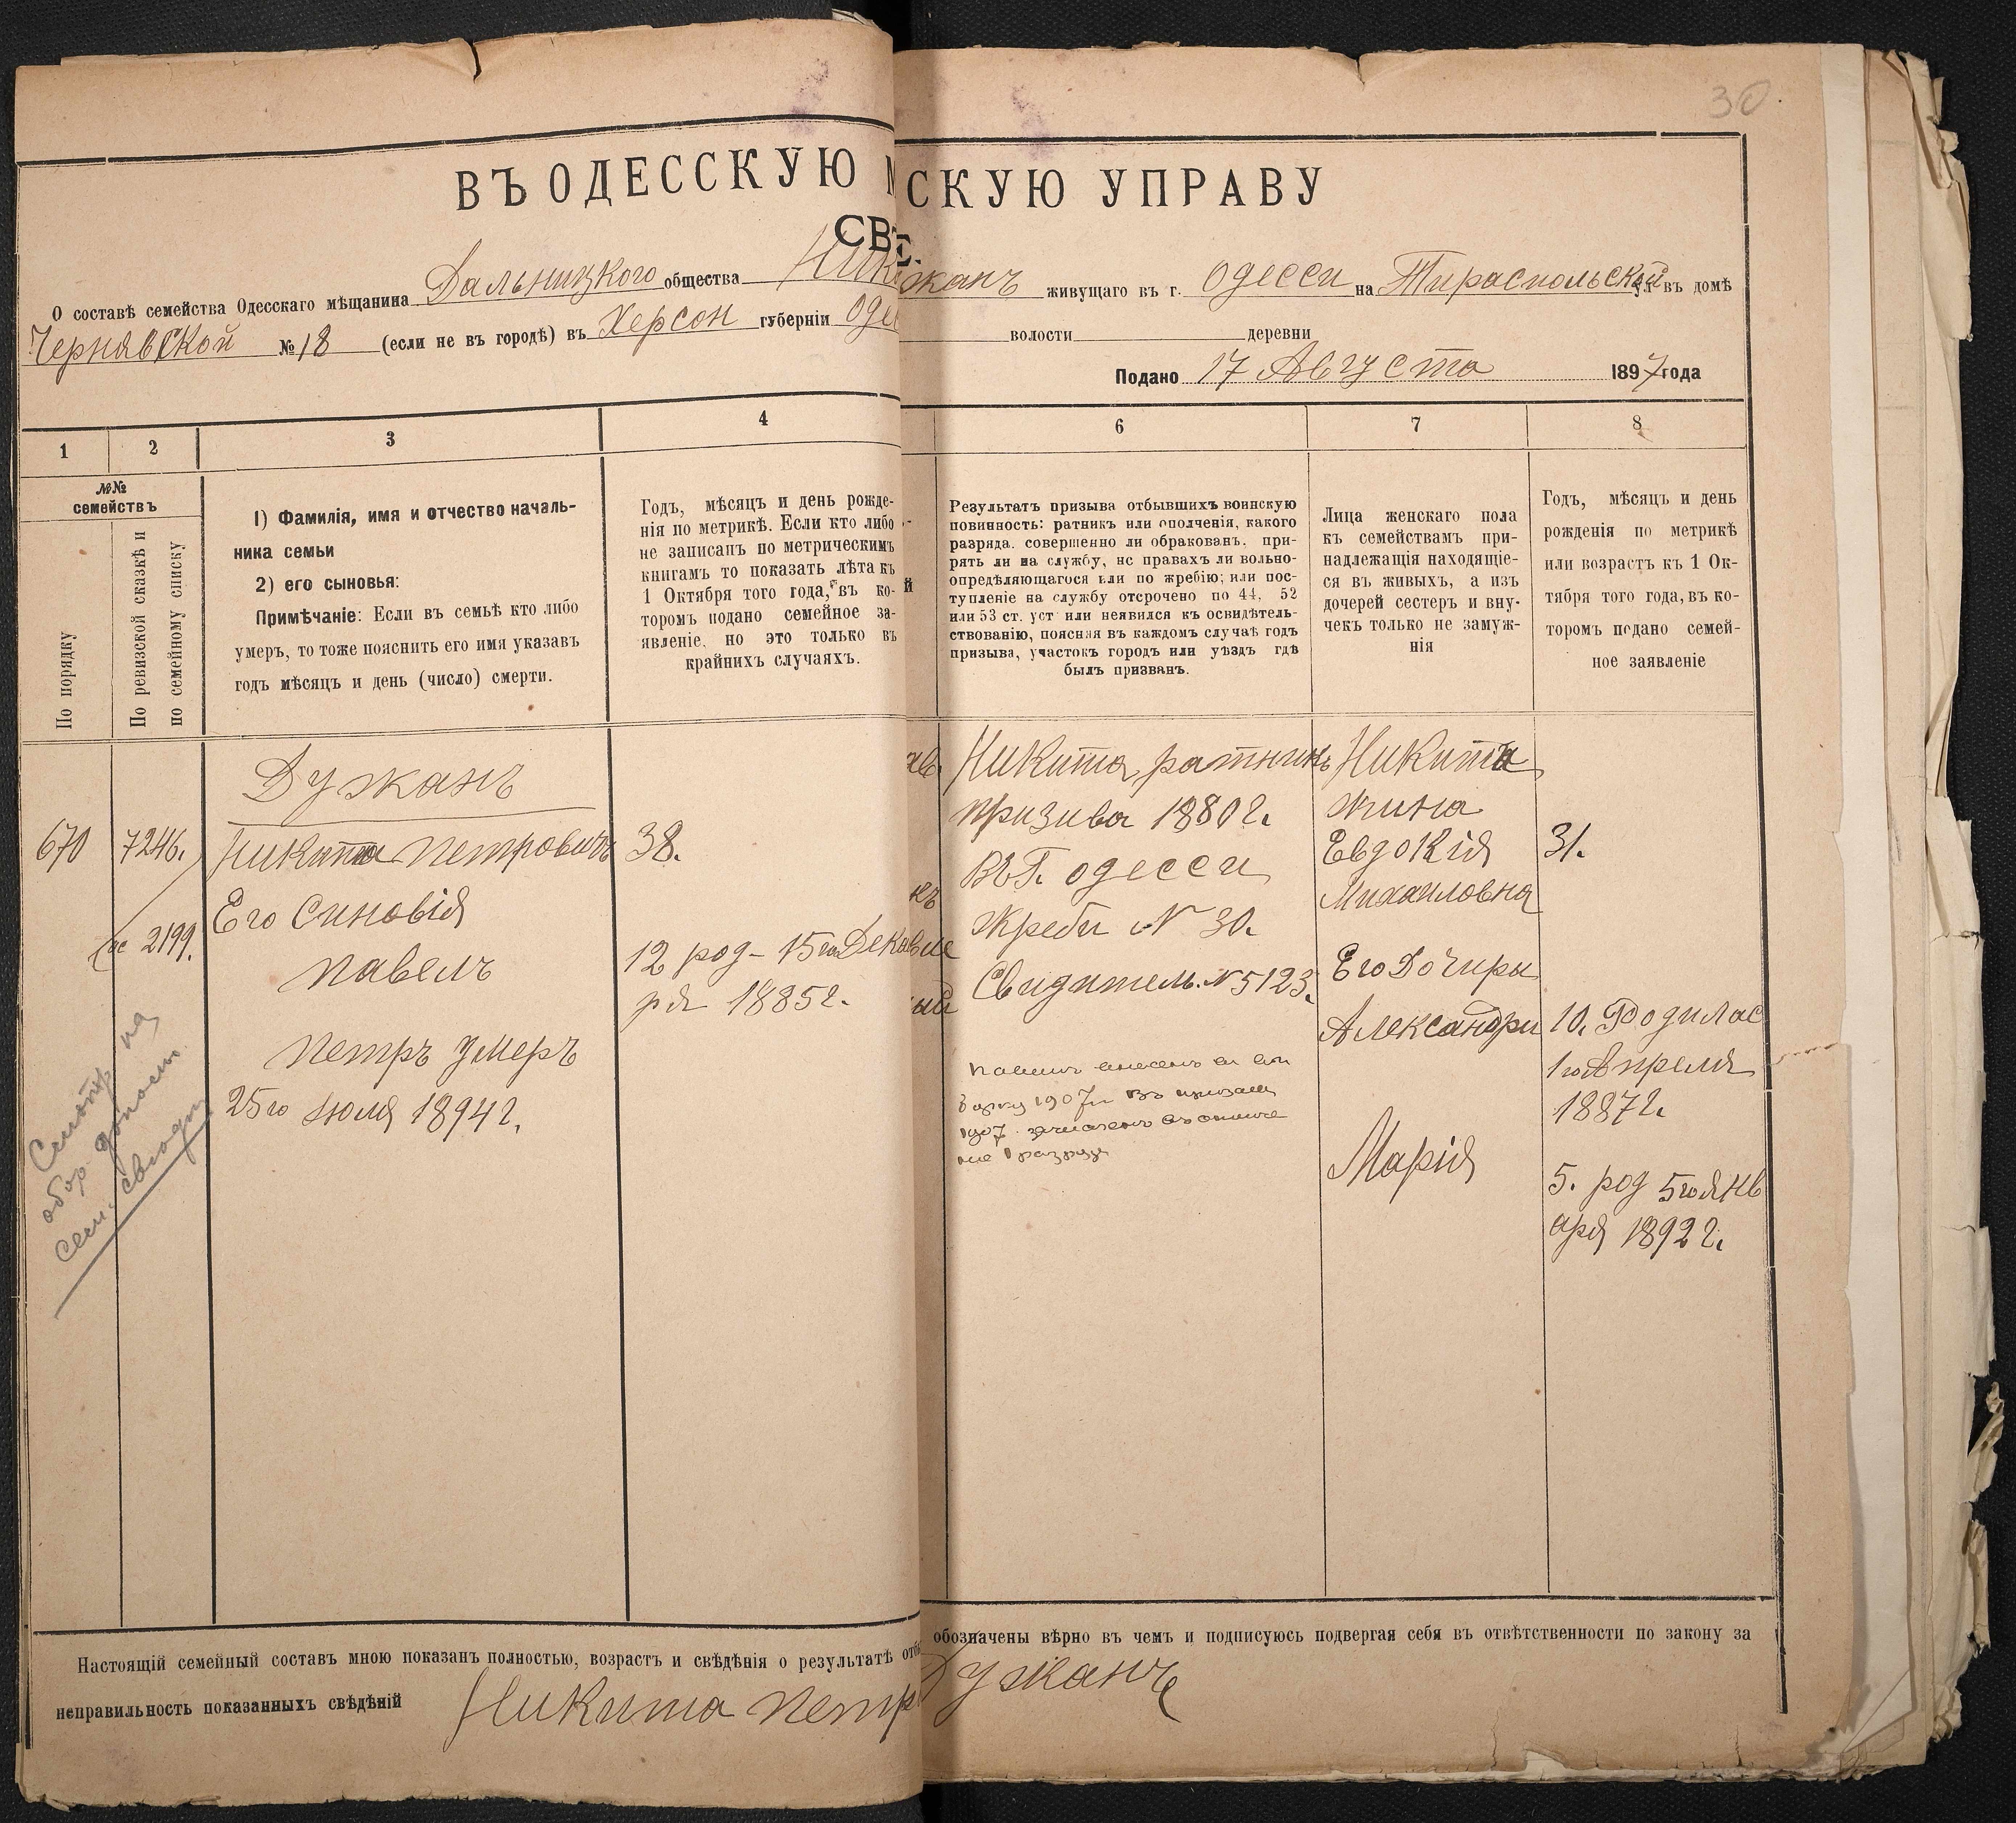 30
ВЪ ОДЕССКУЮ М
СКУЮ УПРАВУ
СВѢ
О составѣ семейства Одесскаго мѣщанина Дальницкого общества Ник
жанъ живущаго въ г. Одесси на Тираспольской ул. въ домѣ
Чернявской № 18 (если не въ городѣ) въ Херсон губерніи Оде
волости деревни
Подано 17 Августа 1897 года
1 2 3 4
6 7 8
№№ семействъ
По порядку
По ревизской сказкѣ и
по семейному списку
1) Фамилія, имя и отчество началь-
ника семьи
2) его сыновья:
Примѣчаніе: Если въ семьѣ кто либо
умеръ, то тоже пояснить его имя указавъ
годъ мѣсяцъ и день (число) смерти.
Годъ, мѣсяцъ и день рожде-
нія по метрикѣ. Если кто либо
не записанъ по метрическимъ
книгамъ то показать лѣта къ
1 Октября того года, въ ко-
торомъ подано семейное за-
явленіе, но это только въ
крайнихъ случаяхъ.
й
Результатъ призыва отбывшихъ воинскую
повинность: ратникъ или ополченія, какого
разряда. совершенно ли обракованъ. при-
рять ли на службу, нс правахъ ли вольно-
опредѣляющагося или по жребію; или пос-
тупленіе на службу отсрочено по 44, 52
или 53 ст. уст или неявился къ освидѣтель-
ствованію, поясняя въ каждомъ случаѣ годъ
призыва, участокъ городъ или уѣздъ гдѣ
былъ призванъ.
Лица женскаго пола
къ семействамъ при-
надлежащія находящіе-
ся въ живыхъ, а изъ
дочерей сестеръ и вну-
чекъ только не замуж-
нія
Годъ, мѣсяцъ и день
рожденія по метрикѣ
или возрастъ къ 1 Ок-
тября того года, въ ко-
торомъ подано семей-
ное заявленіе
Дужанъ
670 7246. Никита Петровичъ 38.
2199. Его Синовія
Павелъ 12 род- 15го Декаб
ря 1885 г.
Петръ умеръ
25го Июля 1894 г.
Смотр на
обор. дополн
сем. свюдн
Никита ратникъ
призива 1880 г.
Въ Г. Одесси
Жреби № 30.
Свидител. № 5123.
1907
1907 зачисленъ въ
разряд
Никита
жина
Евдокія 31.
Михаиловна
Его Дочиры
Александри 10. Родилас
1го Апреля
1887 г.
Марія 5. род 5го Янв
аря 1892 г.
Настоящій семейный составъ мною показанъ полностью, возрастъ и свѣдѣнія о результатѣ отб
обозначены вѣрно въ чемъ и подписуюсь подвергая себя въ отвѣтственности по закону за
неправильность показанныхъ свѣдѣній Никита Петр
Дужанъ